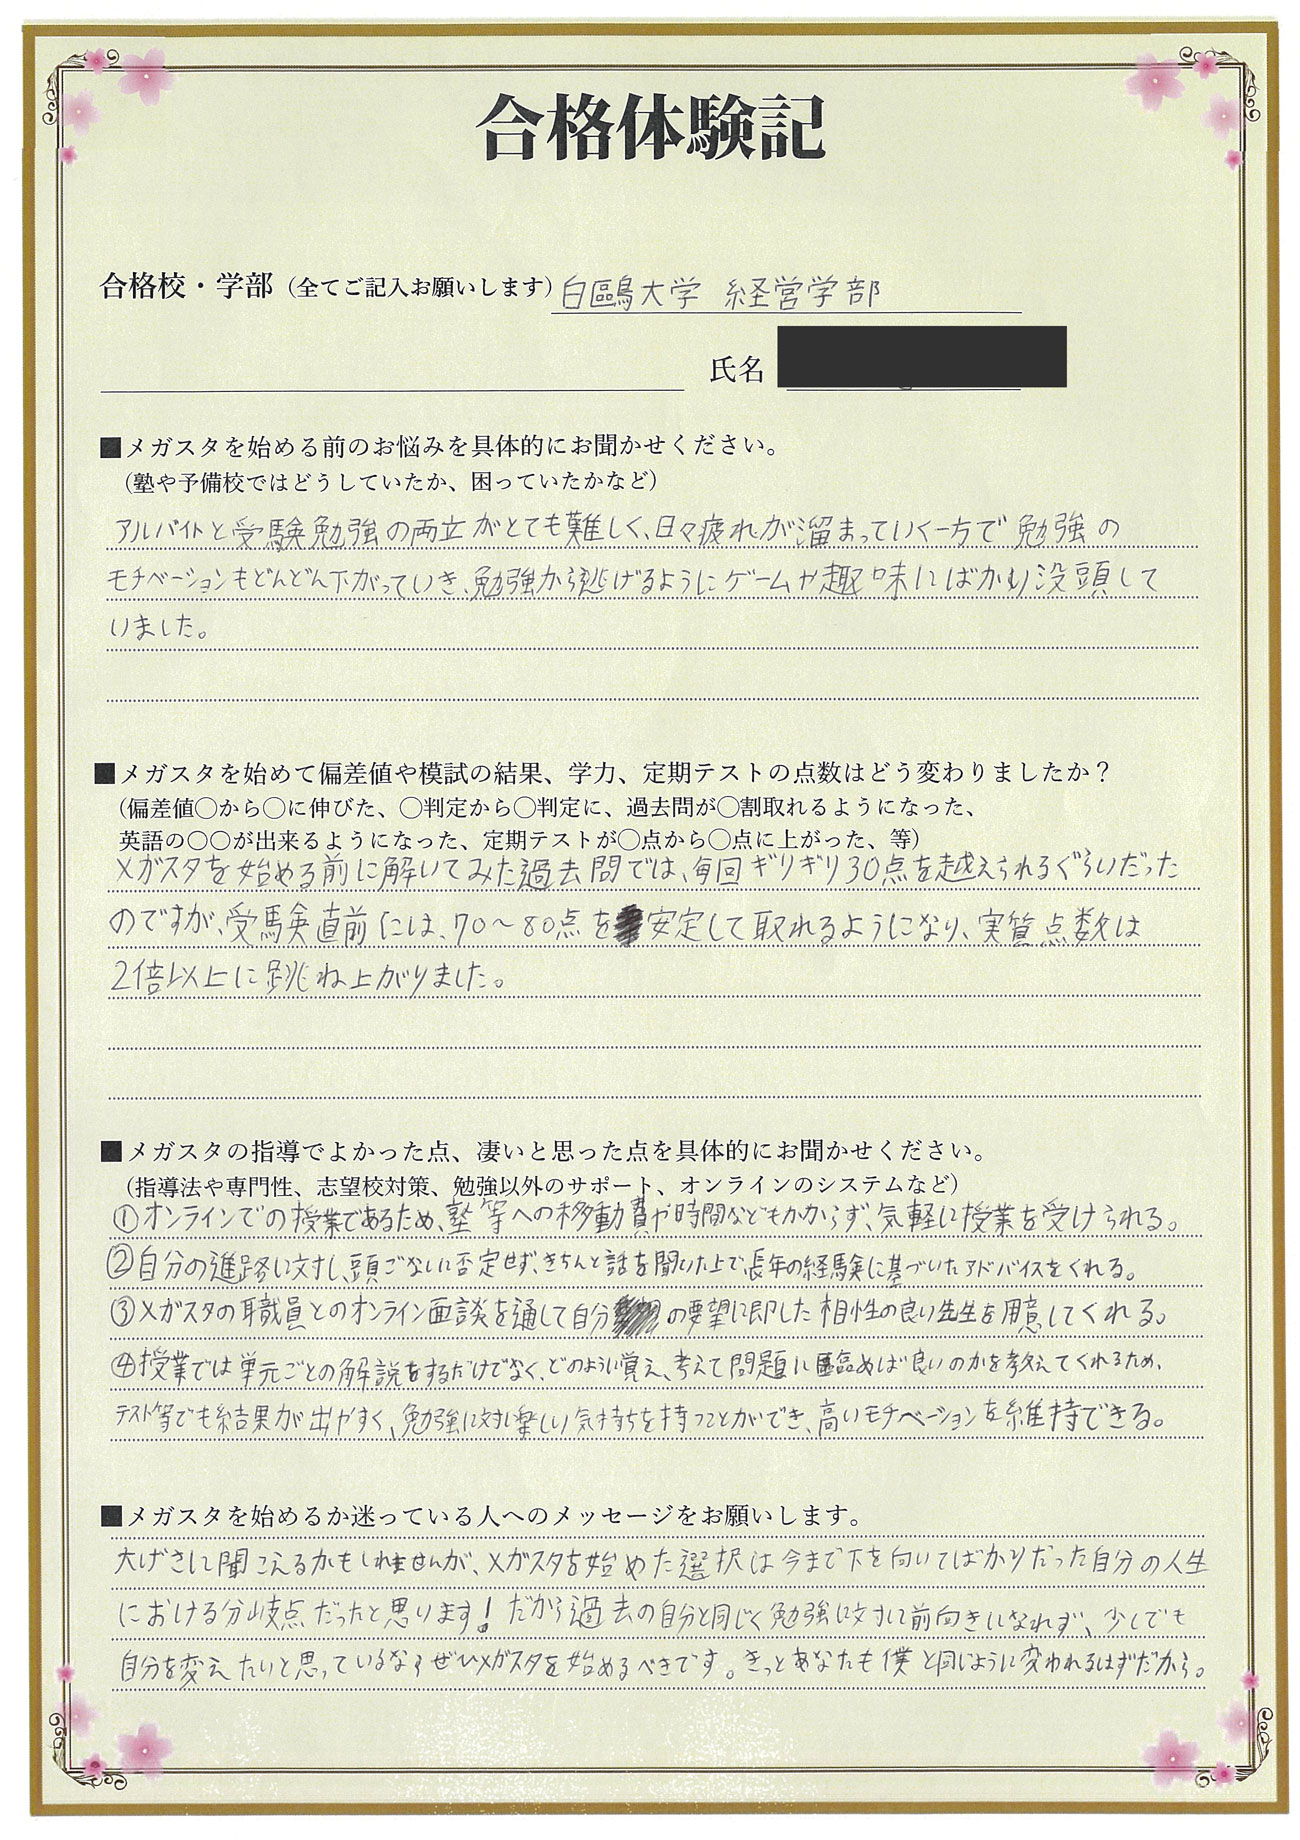 合格体験記
合格校・学部（全てご記入お願いします） 白鷗大学 経営学部
氏名
■メガスタを始める前のお悩みを具体的にお聞かせください。
（塾や予備校ではどうしていたか、困っていたかなど）
アルバイトと受験勉強の両立がとても難しく、日々疲れが溜まっていく一方で勉強の
モチベーションもどんどん下がっていき、勉強から逃げるようにゲームや趣味にばかり没頭して
いました。
■メガスタを始めて偏差値や模試の結果、学力、定期テストの点数はどう変わりましたか？
（偏差値〇から〇に伸びた、〇判定から〇判定に、過去問が〇割取れるようになった、
英語の〇〇が出来るようになった、定期テストが〇点から〇点に上がった、等）
メガスタを始める前に解いてみた過去問では、毎回ギリギリ30点を越えられるぐらいだった
のですが、受験直前には、70～80点を安定して取れるようになり、実質点数は
2倍以上に跳ね上がりました。
■メガスタの指導でよかった点、凄いと思った点を具体的にお聞かせください。
（指導法や専門性、志望校対策、勉強以外のサポート、オンラインのシステムなど）
①オンラインでの授業であるため、塾等への移動費や時間などもかからず、気軽に授業を受けられる。
②自分の進路に対し、頭ごなしに否定せず、きちんと話を聞いた上で、長年の経験に基づいたアドバイスをくれる。
③メガスタの職員とのオンライン面談を通して自分の要望に即した相性の良い先生を用意してくれる。
④授業では単元ごとの解説をするだけでなく、どのように覚え、考えて問題に臨めば良いのかを教えてくれるため、
テスト等でも結果が出やすく、勉強に対し楽しい気持ちを持つことができ、高いモチベーションを維持できる。
■メガスタを始めるか迷っている人へのメッセージをお願いします。
大げさに聞こえるかもしれませんが、メガスタを始めた選択は今まで下を向いてばかりだった自分の人生
における分岐点だったと思います！だから過去の自分と同じく勉強に対して前向きになれず、少しでも
自分を変えたいと思っているならぜひメガスタを始めるべきです。きっとあなたも僕と同じように変われるはずだから。